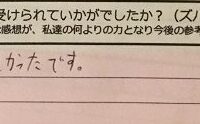 受けられていかがでしたか？（ズバ
感想が、私達の何よりの力となり今後の参考
かったです。